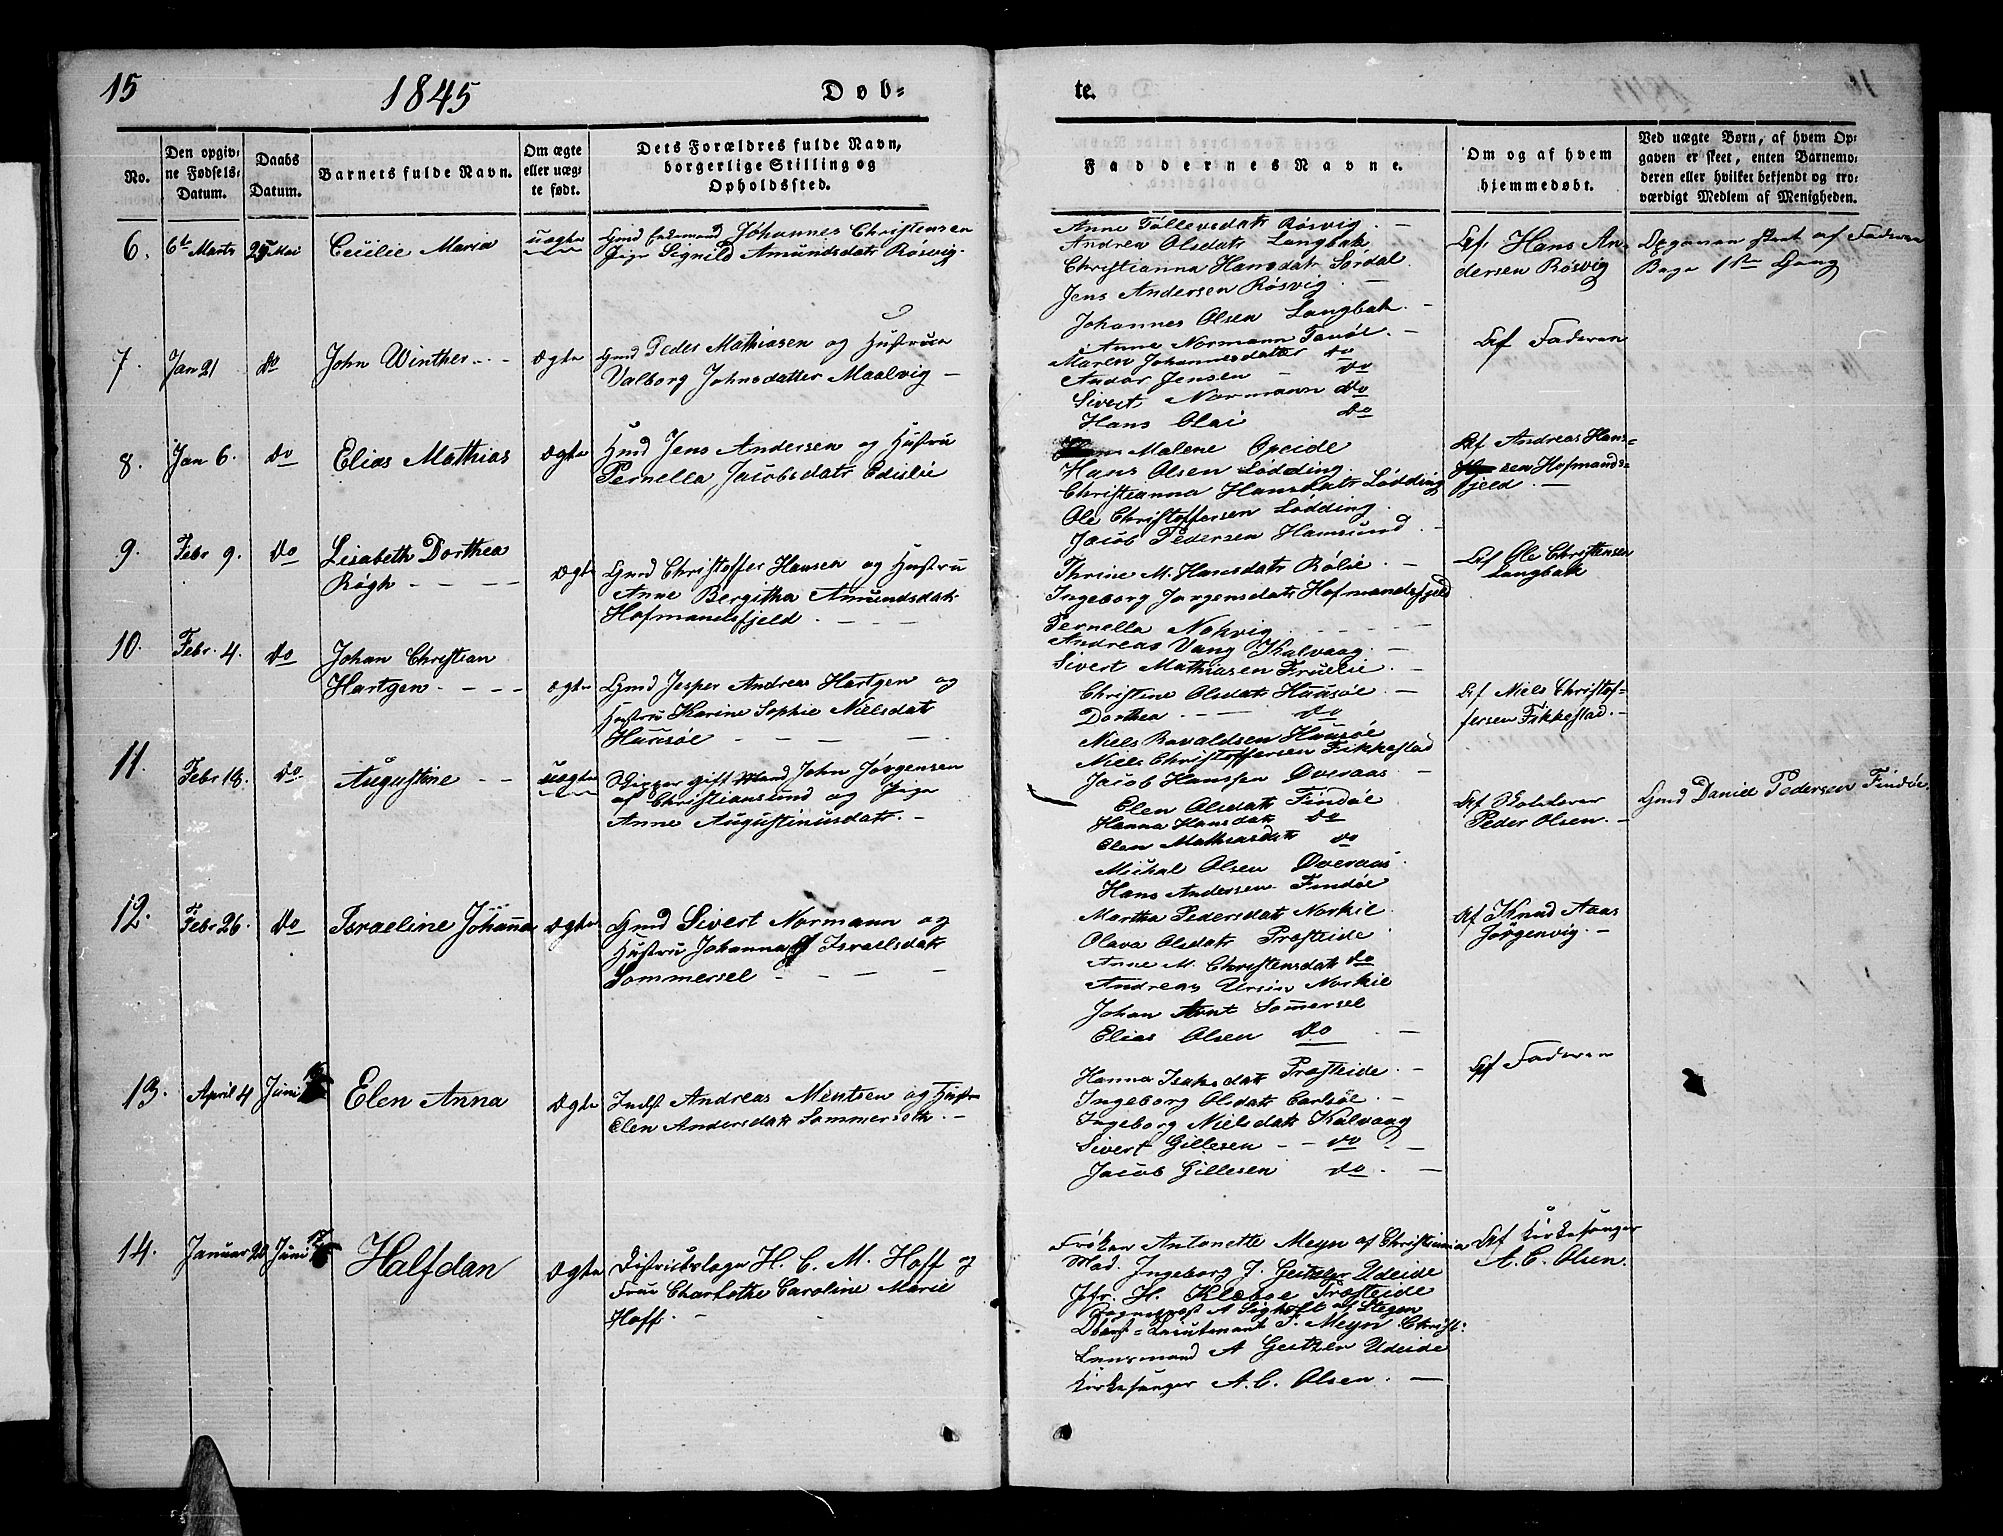 15
1845
Døb-
te.
No.
Den opgiv-
ne Fødsels-
Datum.
Daabs
Datum.
Barnets fulde Navn.
Om ægte
eller uæg-
te født.
Dets Forældres fulde Navn,
borgerlige Stilling og
Opholdssted.
Faddernes Navne.
Om og af hvem
hjemmedøbt.
Ved uægte Børn, af hvem Op-
gaven er skeet, enten Barnemo-
deren eller hvilket bekjendt og tro-
værdigt Medlem af Menigheden.
6.
6te Marts
25 Mai
Cecilie Maria
uægte
Gmd Johannes Christensen
Pige Signild Amundsdatr Røsvig.
Anne Tollevsdatr Røsvig. -
Andrea Olsdatr Langbak
Christianna Hansdatr Sørdal.
Jens Andersen Røsvig -
Johannes Olsen Langbak. -
Af Hans An-
dersen Røsvig
Opgaven skeet af Faderen
Begge 1ste Gang
7.
Jan 21
do
John Winther - -
Ægte
Gmd Peder Mathiasen og Hustrue
Valborg Johnsdatter Maalvig -
Anne Normann Tanøe. -
Maren Johannesdatter do
Andor Jensen - do
Sivert Normann do
Hans Olai do
Af Faderen
8.
Jan 6.
do
Elias Mathias
Ægte
Gmd Jens Andersen og Hustru
Pernella Jacobsdatr Edislie
Malene Opeide
Hans Olsen Lødding
Christianna Hansdatr Lødding
Ole Christoffersen Lødding.
Jacob Pedersen Hamsund -
Af Andreas Han-
sen Hofmands-
fjeld -
9.
Febr 9.
do
Lisabeth Dorthea
Røgh - - - -
Ægte
Gmd Christoffer Hansen og Hustru
Anne Bergitha Amundsdatr
Hofmandsfjeld - - -
Thrine M. Hansdatr Rølie. -
Ingeborg Jørgensdatr Hofmandsfjeld
Pernella Nohvig
Andreas Vang Kalvaag. -
Sivert Mathiasen Fruelie. -
Af Ole Christensen
Langbak
10.
Febr. 4.
do
Johan Christian
Hartgen. - - -
Ægte
Gmd Jesper Andreas Hartgen og
Hustru Karine Sophie Nielsdatr
Huusøe - - - -
Christine Olsdatr Huusøe -
Dorthea - - do
Niels Ravaldsen Huusøe
Niels Christoffersen Fikkestad
Jacob Hanssen Overaas. -
Af Niels Christof-
fersen Fikkestad. -
11.
Febr 18.
do
Augustine - -
uægte
Skipper gift Mand John Jørgensen
af Christiansund og Pige
Anne Augustinusdatr. -
Elen Olsdatr Findøe
Hanna Hansdatr do
Elen Mathiasdatr do
Michal Olsen Overaas.
Hans Andersen Findøe
Af Skolelærer
Peder Olsen. -
Gmd Daniel Pedersen Findøe.
12.
Febr 26.
do
Israeline Johanna
Ægte
Gmd Sivert Normann og
Hustru Johanna Israelsdatr
Sommersel - - - -
Martha Pedersdatr Norkil.
Olava Olsdatr Presteide
Anne M. Christensdatr do
Andreas Ursin Norkil
Johan Arnt Sommersel
Elias Olsen do - -
Af Knud Aas
Jørgenvig. -
13.
April 4
Juni
Elen Anna
Ægte
Indst Andreas Mentsen og Hustru
Elen Andersdatr Sommerseth. -
Hanna Isaksdatr Presteide. -
Ingeborg Olsdatr Carlsøe. -
Ingeborg Nielsdatr Kalvaag
Sivert Gillesen - - do - -
Jacob Gillesen do - -
Af Faderen
14.
Januar 20
Juni
Halfdan
Ægte
Districtslæge H. C. M. Hoff og
Frue Charlothe Caroline Marie
Hoff. -
Frøken Antonette Meyn af Christiania
Mad. Ingeborg J. Geitzler Udeide
Jfr. H. Klæboe Presteide
Sogneprest A Sigholt af Stegen
Oberst-Lieutenant F. Meyn Christ:
Lensmand A Geitzler Udeide
Kirkesanger A. C. Olsen. -
Af Kirkesanger
A. C. Olsen.